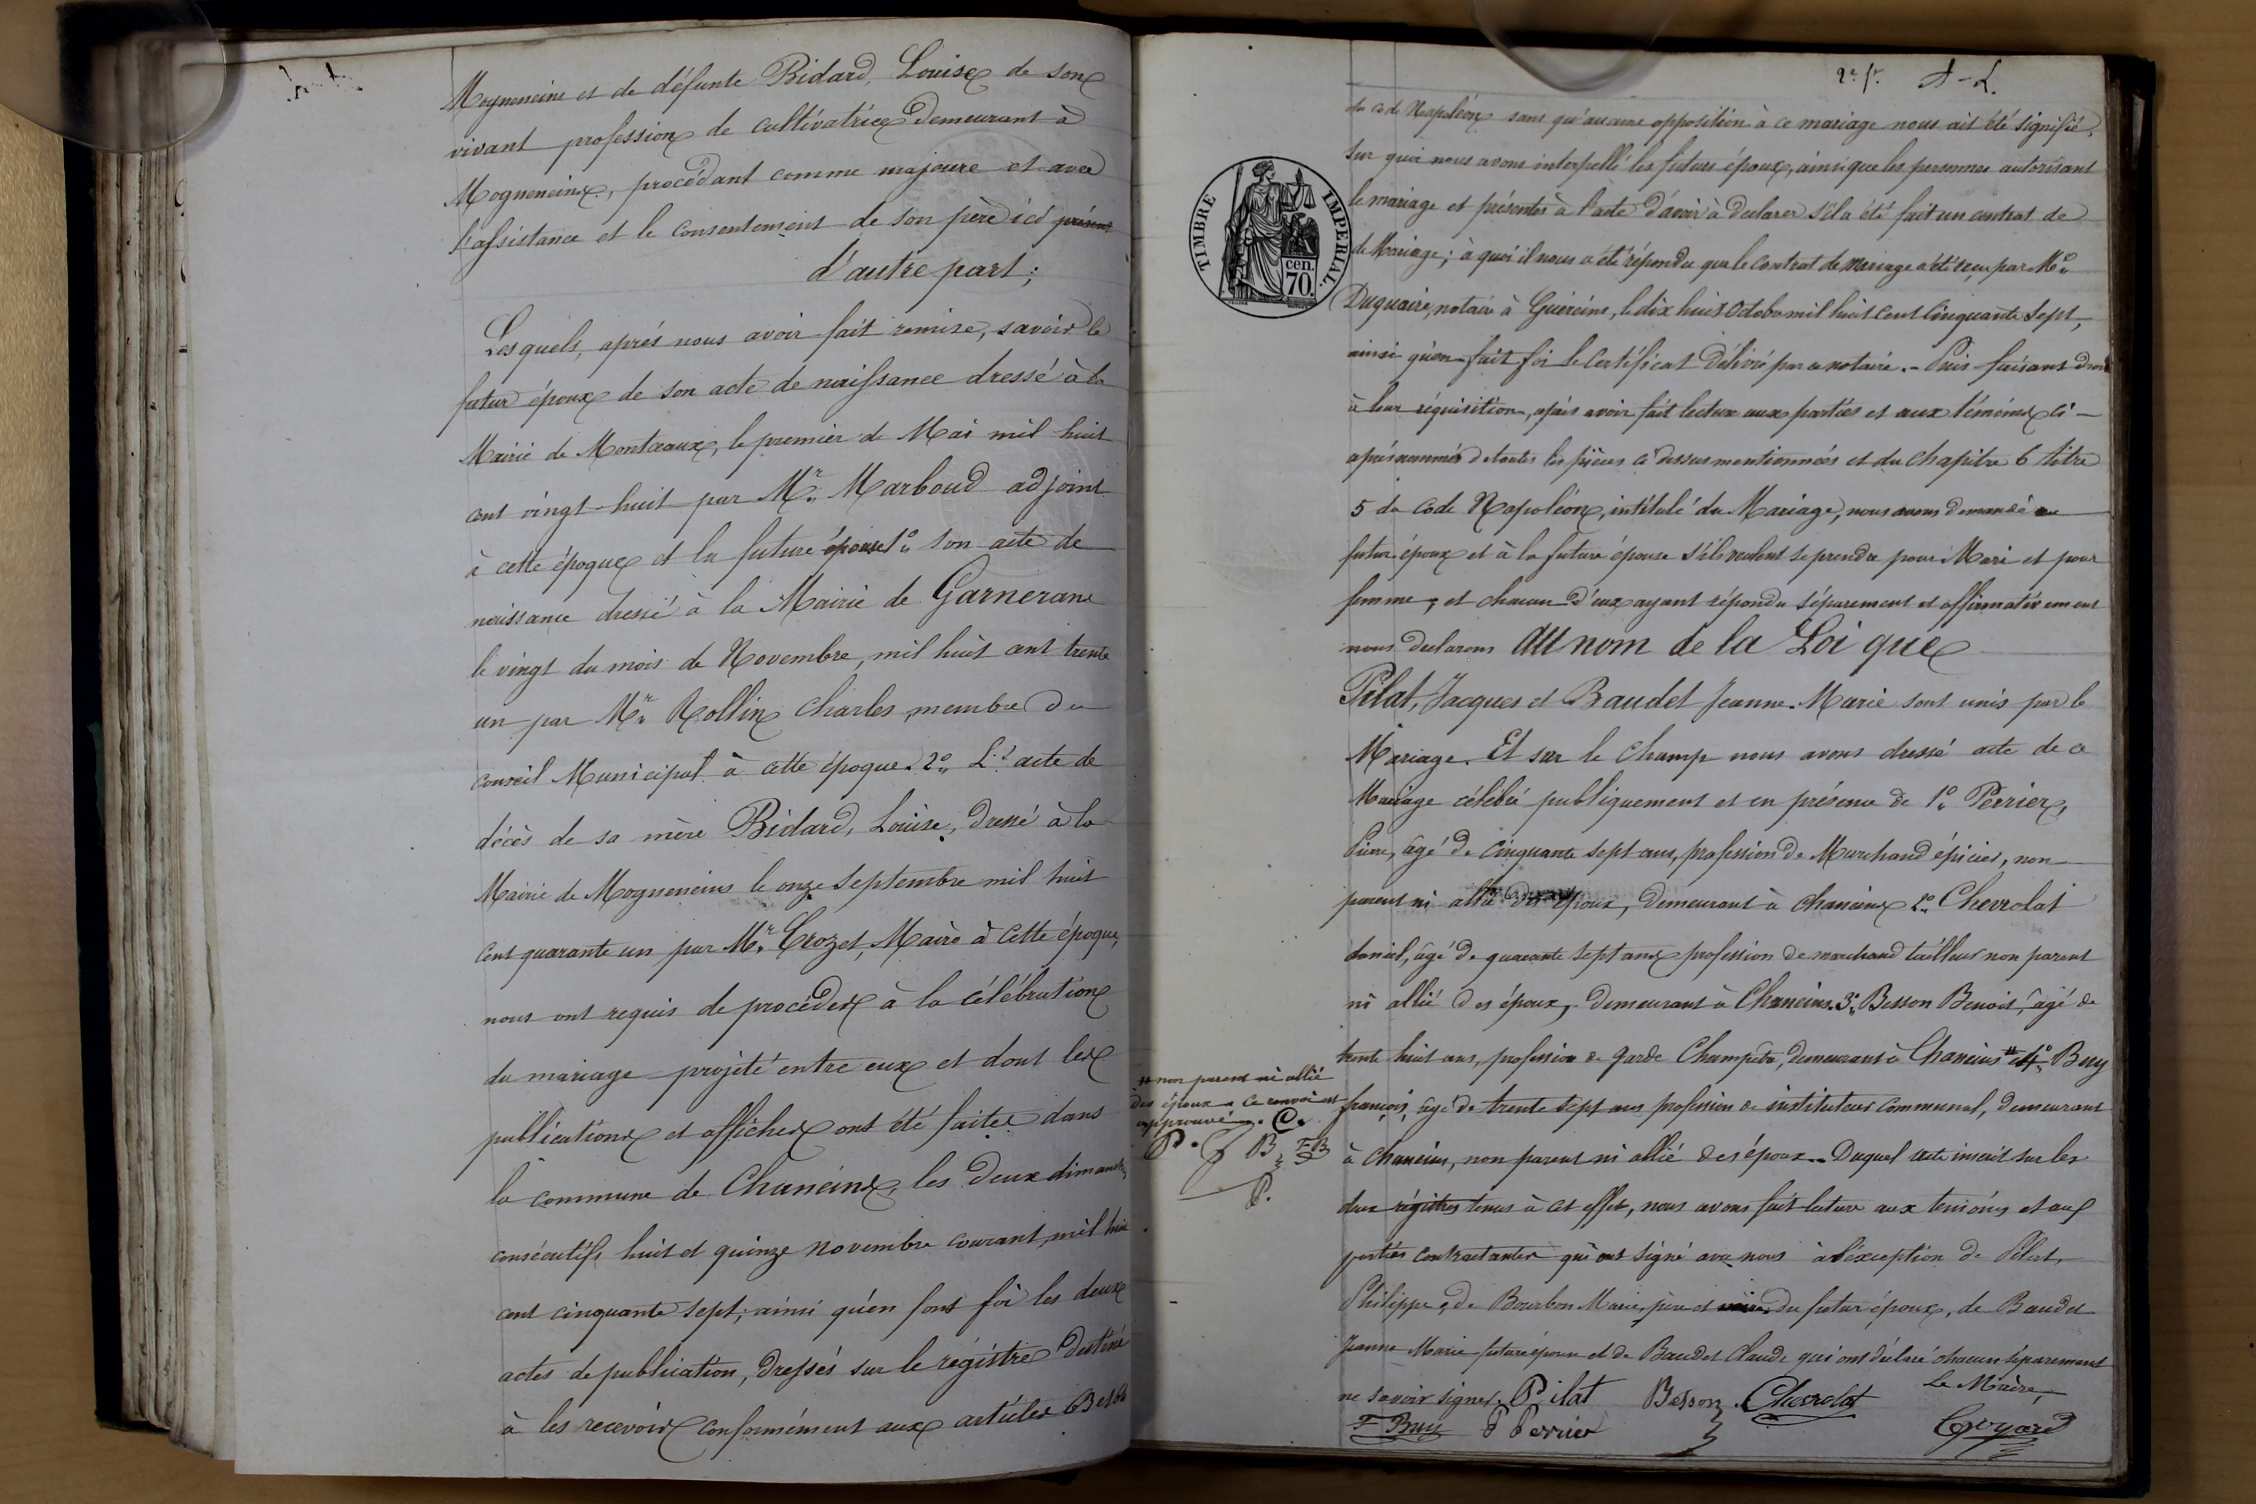 Mogneneins et de défunte Bidard, Louise de son
vivant profession de cultivatrice demeurant à
Mogneneins, procédant comme majeure et avec
l'assistance et le consentement de son père ici présent
d'autre part;
Lesquels, après nous avoir fait remise, savoir le
futur époux de son acte de naissance dressé à la
Mairie de Montceaux, le premier de Mai mil huit
cent vingt-huit par Mr. Marboud adjoint
à cette époque et la future épouse 1º son acte de
naissance dressé à la Mairie de Garnerans
le vingt du mois de Novembre, mil huit cent trente
un par Mr. Rollin Charles, membre du
conseil Municipal à cette époque. 2º L'acte de
décès de sa mère Bidard, Louise, dressé à la
Mairie de Mogneneins le onze Septembre mil huit
cent quarante un par Mr. Crozet, Maire à cette époque,
nous ont requis de procéder à la célébration
du mariage projeté entre eux et dont les
publications et affiches ont été faites dans
la commune de Chaneins, les deux dimanches
consécutifs huit et quinze novembre courant, mil huit
cent cinquante sept, ainsi qu'en font foi les deux
actes de publication, dressés sur le régistre destiné
à les recevoir conformément aux articles 63 et 64
2e. fr. A - L.
du code Napoléon sans qu'aucune opposition à ce mariage nous ait été signifié.
Sur quoi nous avons interpellé les futurs époux, ainsi que les personnes autorisant
le mariage et présentes à l'acte d'avoir à declarer s'il a été fait un contrat de
de Mariage; à quoi il nous a été répondu que le contrat de mariage a été reçu par Me.
Duquaire, notaire à Guéreins, le dix huit Octobre mil huit cent cinquante sept,
ainsi qu'en fait foi le certificat délivré par ce notaire. - Puis faisant droit
à leur réquisition, après avoir fait lecture aux parties et aux témoins ci-
après nommés de toutes les pièces ci dessus mentionnées et du chapitre 6 titre
5 du code Napoléon, intitulé du Mariage, nous avons demandé au
futur époux et à la future épouse s'ils veulent se prendre pour Mari et pour
femme, et chacun d'eux ayant répondu séparement et affirmativement
nous declarons au nom de la Loi que
Pilat, Jacques et Baudet Jeanne-Marie sont unis par le
Mariage. Et sur le champ nous avons dressé acte de ce
Mariage célébré publiquement et en présence de 1º Perrier,
Pierre, âgé de cinquante sept ans, profession de Marchand épicier, non
parent ni allié des époux, demeurant à chaneins 2º Chevrolat
daniel, âgé de quarante sept ans profession de marchand tailleur non parent
ni allié des époux, demeurant à Chaneins. 3º Besson Benoit, âgé de
trente huit ans, profession de garde Champêtre, demeurant à Chaneins # et 4º Buy
françois, âgé de trente sept ans profession de instituteur communal, demeurant
à chaneins, non parent ni allié des époux. Duquel acte inscrit sur les
deux régistres tenus à cet effet, nous avons fait lecture aux temoins et aux
parties contractantes qui ont signé avec nous à l'éxception de Pilat,
Philippe, de Bourbon Marie, père et mère du futur époux, de Baudet
Jeanne Marie future épouse et de Baudet Claude qui ont déclaré chacun séparement
ne savoir signer. Pilat Besson Chevrolat Le Maire,
F Buy P Perrier Goyard
# non parent ni allié
des époux ce renvoi est
approuvé. C.
P. B. FB
P.
TIMBRE IMPERIAL.
cen.
70.